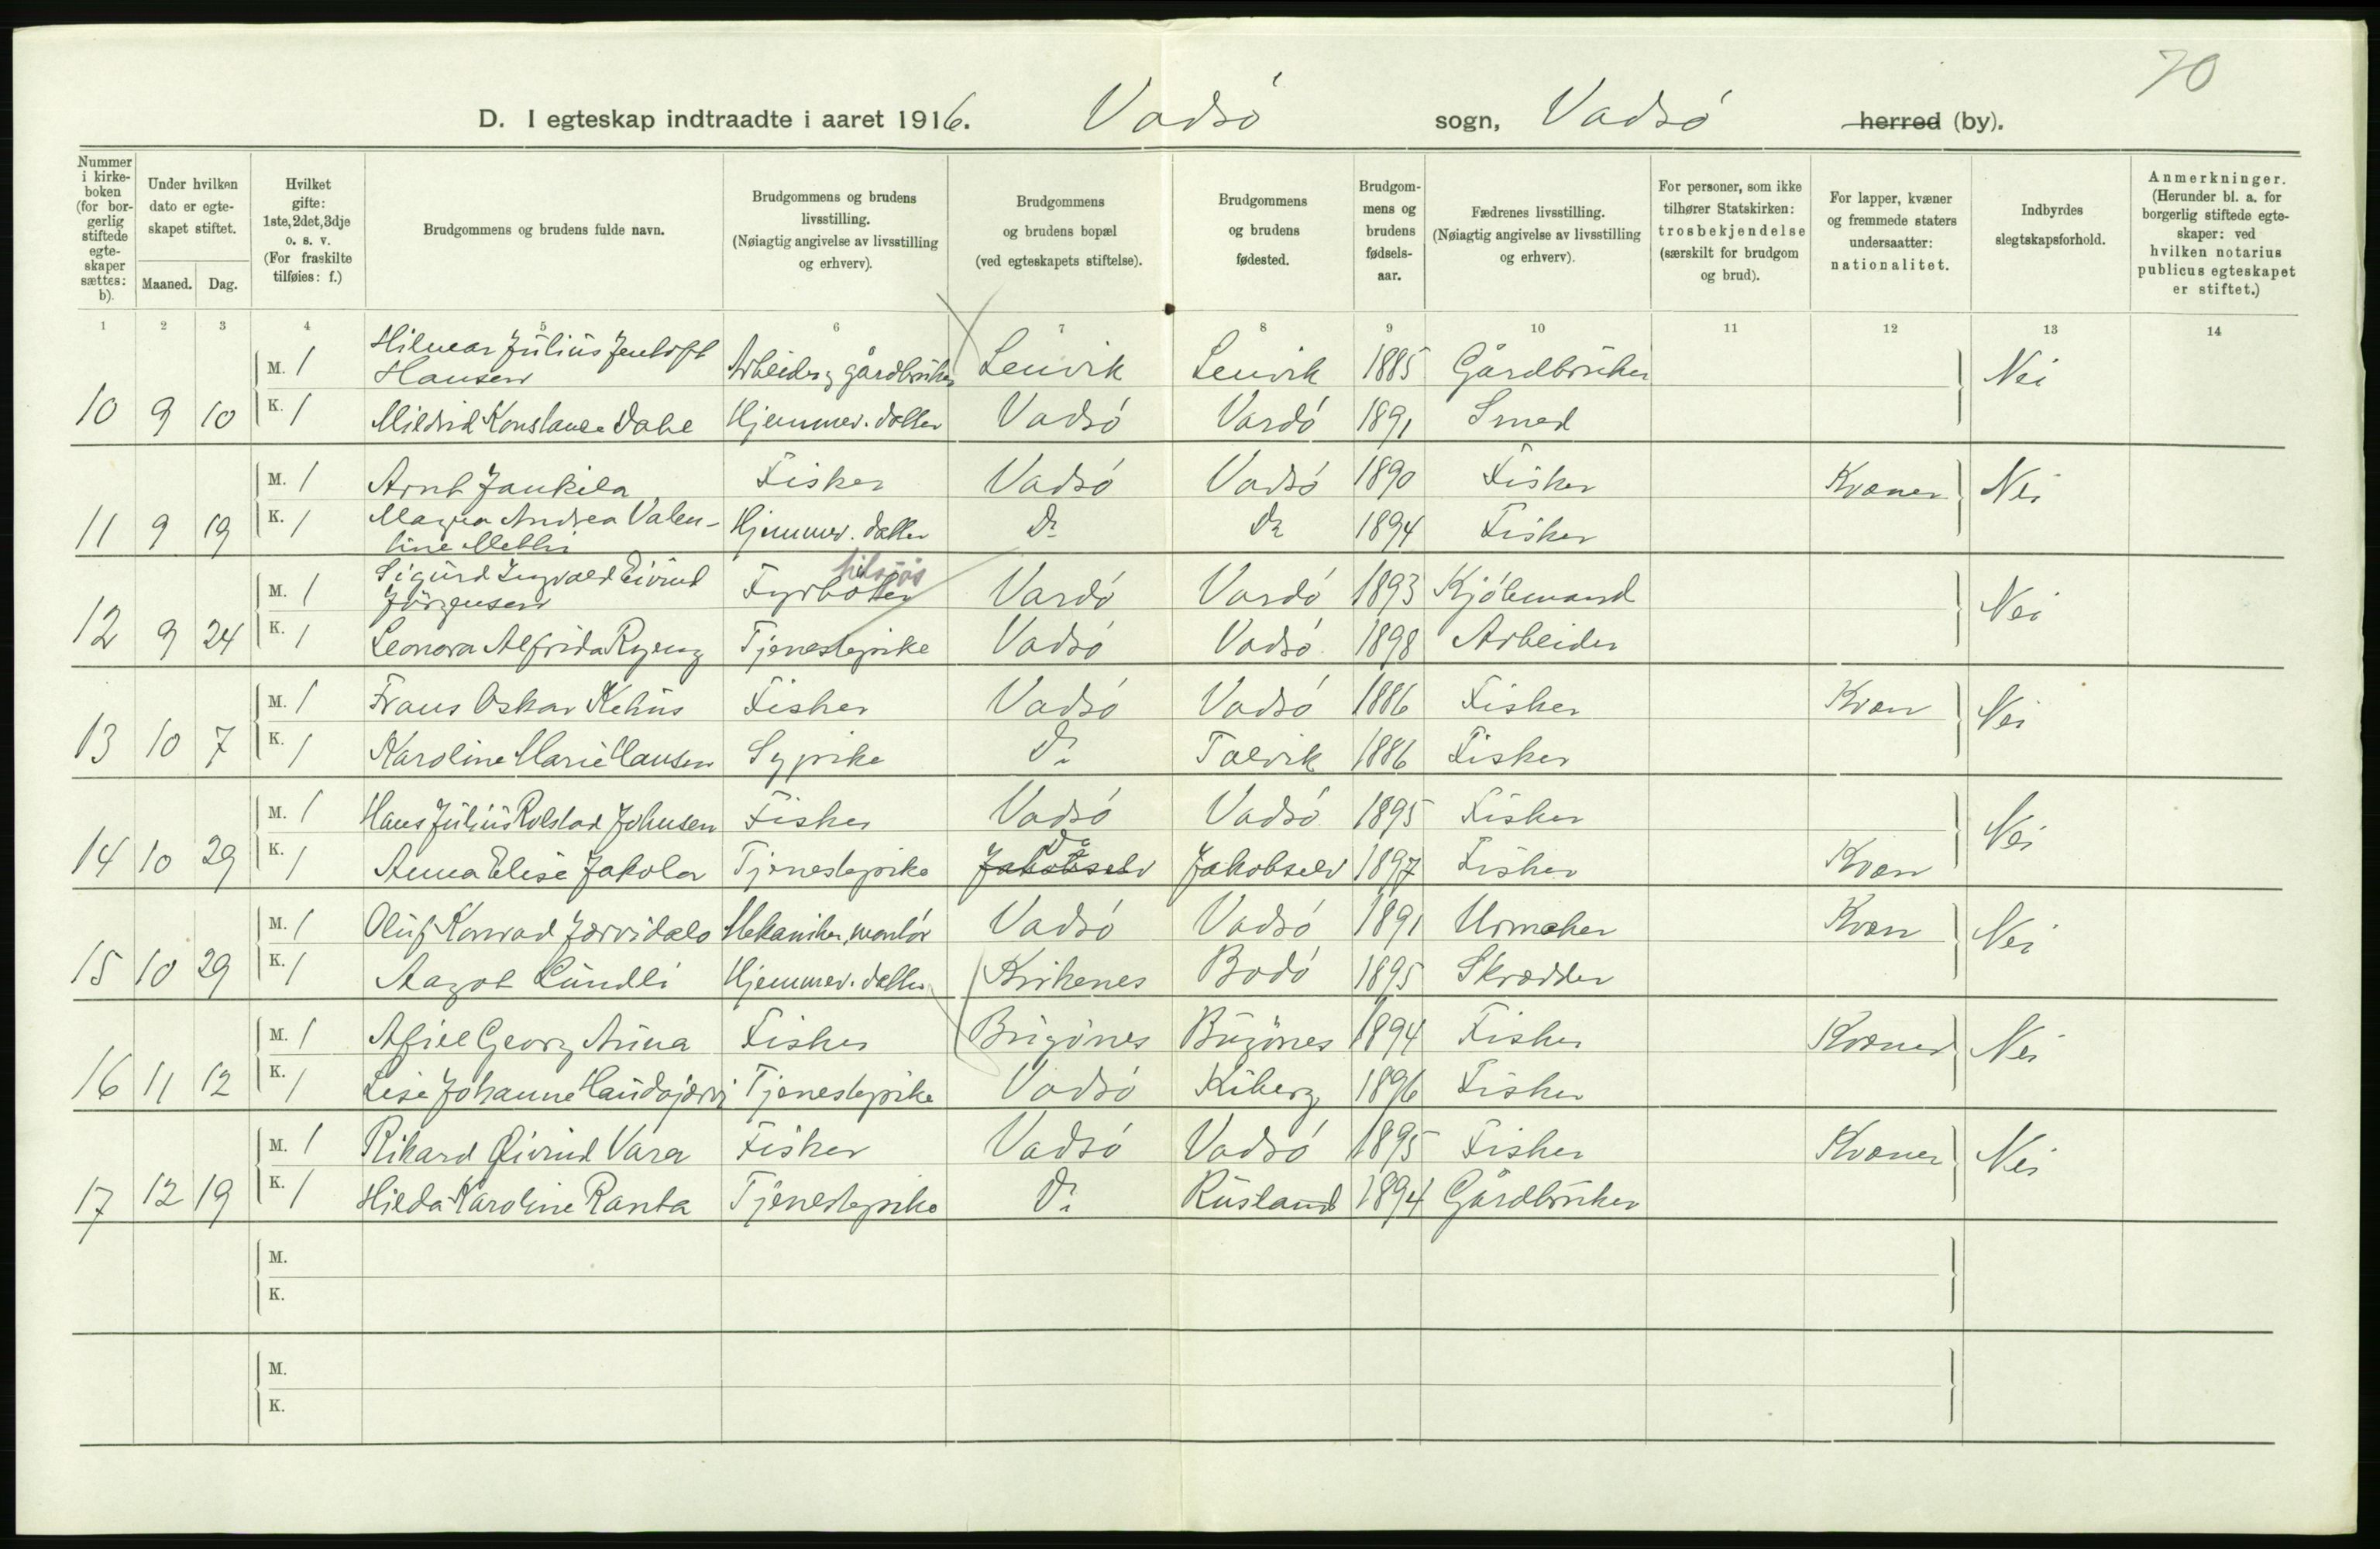 70
D. I egteskap indtraadte i aaret 1916. Vadsó sogn, Vadsó herred (by).
Nummer i kirke-boken (for bor-gerlig stiftede egte-skaper sættes: b).
Under hvilken dato er egte-skapet stiftet.
Maaned. Dag.
Hvilket gifte: 1ste, 2det, 3dje o. s. v. (For fraskilte tilføies: f.)
Brudgommens og brudens fulde navn.
Brudgommens og brudens livsstilling. (Nøiagtig angivelse av livsstilling og erhverv).
Brudgommens og brudens bopæl (ved egteskapets stiftelse).
Brudgommens og brudens fødested.
Brudgom-mens og brudens fødsels-aar.
Fædrenes livsstilling. (Nøiagtig angivelse av livsstilling og erhverv).
For personer, som ikke tilhører Statskirken: trosbekjendelse (særskilt for brudgom og brud).
For lapper, kvæner og fremmede staters undersaatter: nationalitet.
Indbyrdes slegtskapsforhold.
Anmerkninger. (Herunder bl. a. for borgerlig stiftede egte-skaper: ved hvilken notarius publicus egteskapet er stiftet.)
1 2 3 4 5 6 7 8 9 10 11 12 13 14
M. 1 Hilmar Júliús Jentoft Hansen Arbeider, gårdbrúker Lenvik Lenvik 1885 Gårdbrúker Nei
10 9 10 K. 1 Mildrid Konstanse Dahl Hjemmev. datter Vadsó Vardó 1891 Smed
M. 1 Arnt Jankila Fisker Vadsó Vadsó 1890 Fisker Kvæner Nei
11 9 19 K. 1 Magna Andrea Valen-tine Do Hjemmev. datter Do Do 1894 Fisker
M. 1 Sigúrd Ingvald Eivind Jörgensen Fyrböter tilsjøs Vardó Vardó 1893 Kjóbmand Nei
12 9 24 K. 1 Leonora Alfrida Ryeng Tjenestepike Vadsó Vadsó 1898 Arbeider
M. 1 Frans Oskar Kehús Fisker Vadsó Vadsó 1886 Fisker Kvæn Nei
13 10 7 K. 1 Karoline Marie Hansen Sypike Do Talvik 1886 Fisker
M. 1 Hans Júliús Rolstad Johnsen Fisker Vadsó Vadsó 1895 Fisker Nei
14 10 29 K. 1 Anna Elise Jakola Tjenestepike Jakobselv Do Jakobselv 1897 Fisker Kvæn
M. 1 Olúf Konrad Jærvidalo Mekaniker, montór Vadsó Vadsó 1891 Urmaker Kvæn Nei
15 10 29 K. 1 Aagot Lúndli Hjemmev. datter Kirkenes Bodó 1895 Skrædder
M. 1 Afiel Georg Anina Fisker Búgónes Búgónes 1894 Fisker Kvæner Nei
16 11 12 K. 1 Lise Johanne Haúdajærvi Tjenestepike Vadsó Kiberg 1896 Fisker
M. 1 Rikard Eivind Vara Fisker Vadsó Vadsó 1895 Fisker Kvæner Nei
17 12 19 K. 1 Hilda Karoline Ranta Tjenestepike Do Rúsland 1894 Gårdbrúker
M.
K.
M.
K.